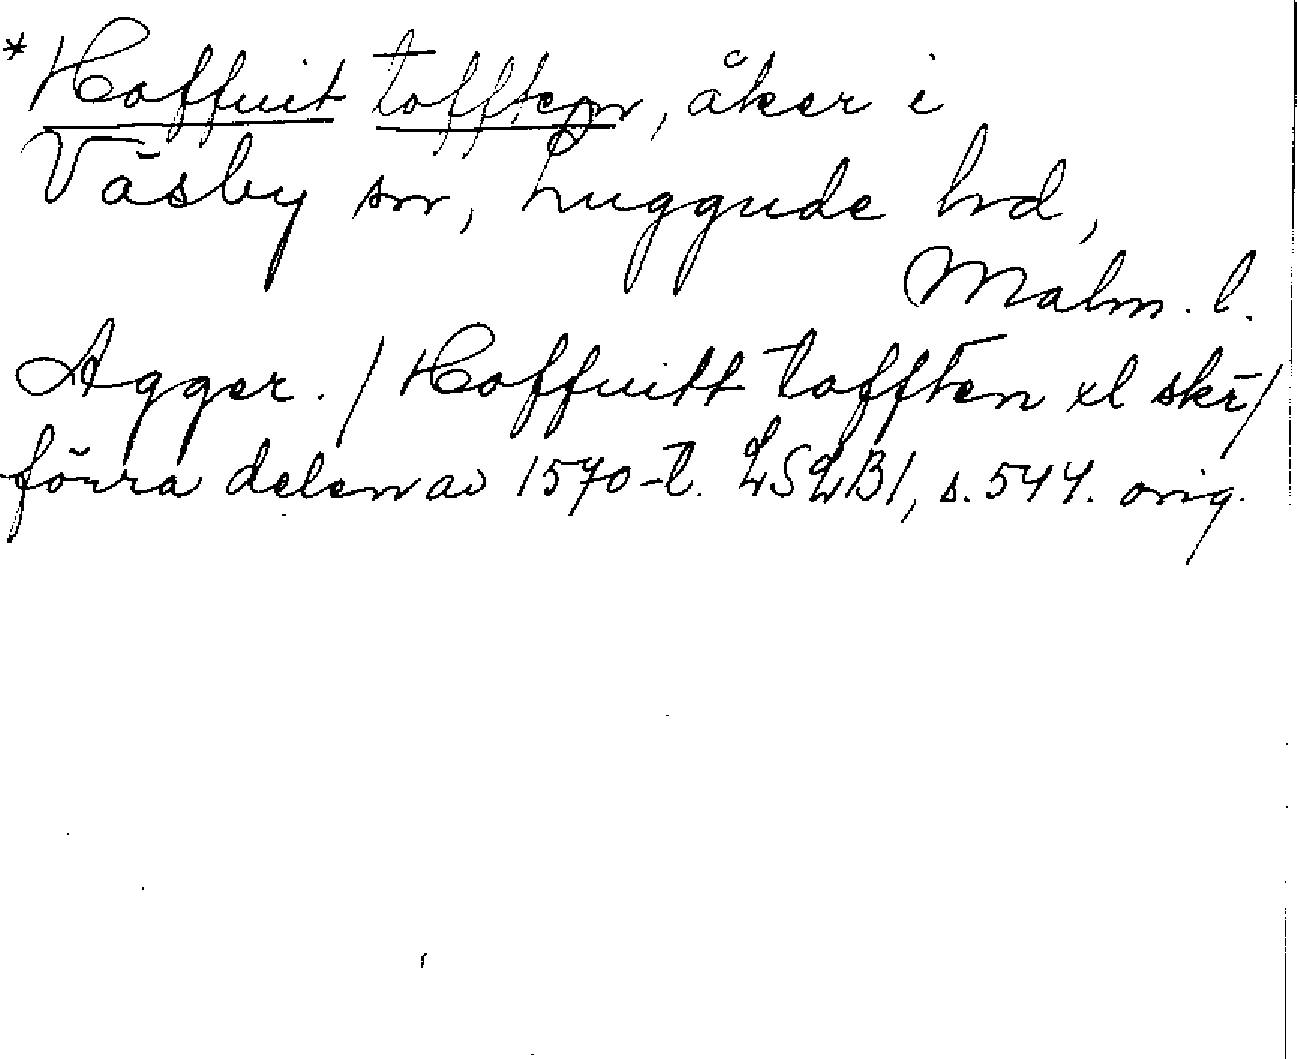 *Hoffuit tofften, åker i
Väsby sn, Luggude hd,
Malm. l.
Agger. / Hoffuitt tofften xl skr̄ /
förra delen av 1570-t. LSLB1, s. 544. orig.